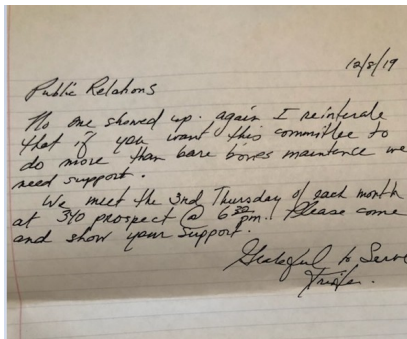 12/8/19
Public Relations
No one showed up. again I reinterate
that if you want this committee to
do more than bare bones maintence we
need support.
We meet the 3rd Thursday of each month
at 340 prospect @ 6:30 pm. Please come
and show your support.
Grateful to Serve